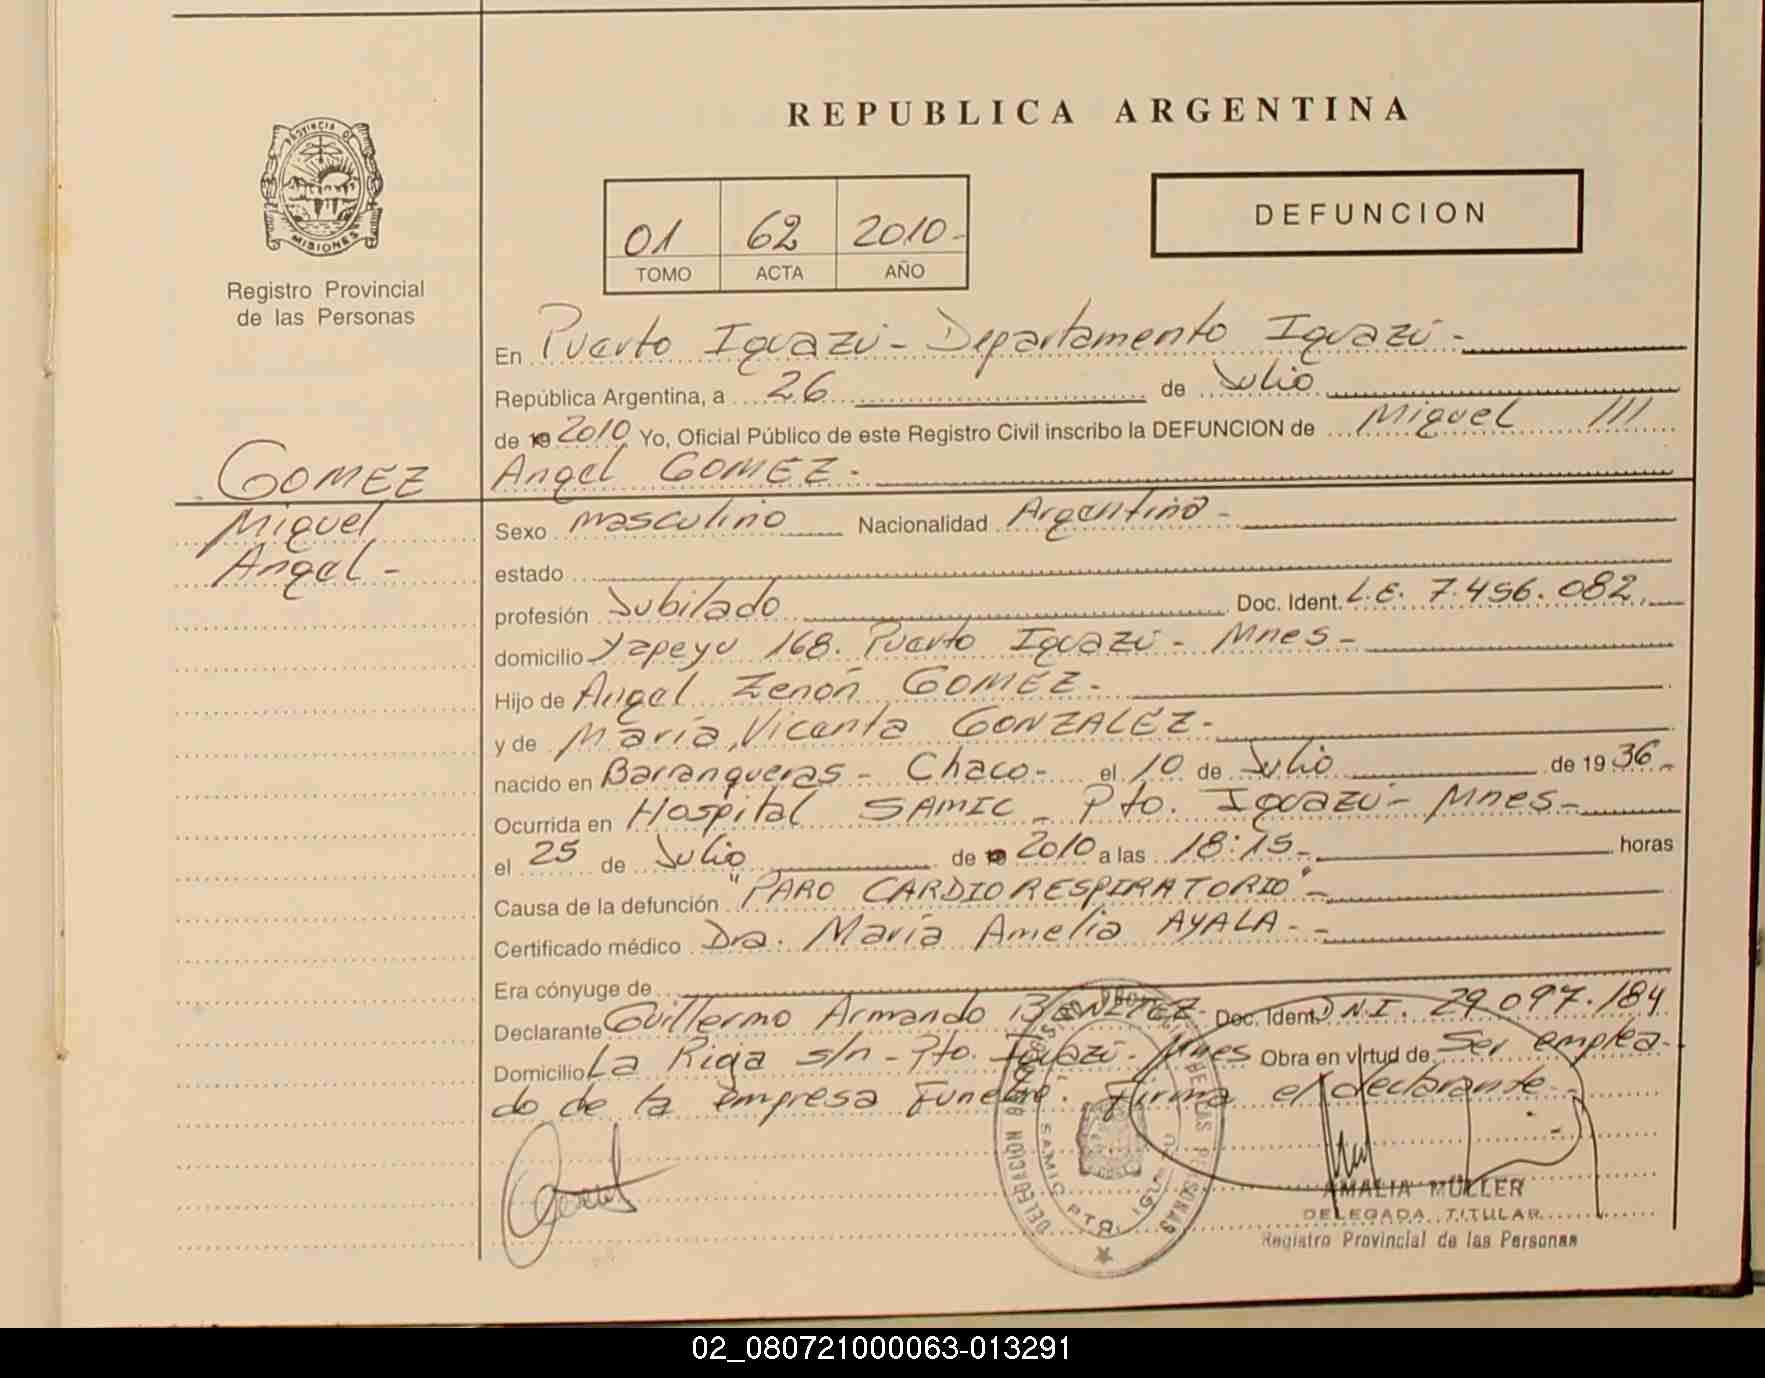 REPUBLICA ARGENTINA
PROVINCIA DE
MISIONES
Registro Provincial
de las Personas
01 62 2010-
TOMO ACTA AÑO
DEFUNCION
En Puerto Iguazú - Departamento Iguazú -
República Argentina, a 26 de Julio
de 19 2010 Yo, Oficial Público de este Registro Civil inscribo la DEFUNCION de Miguel ///
Angel GOMEZ -
GOMEZ
Miguel
Angel -
Sexo masculino Nacionalidad Argentina -
estado
profesión Jubilado Doc. Ident. L.E. 7.456.082.
domicilio Yapeyu 168. Puerto Iguazú - Mnes -
Hijo de Angel Zenón GOMEZ -
y de María Vicenta GONZALEZ -
nacido en Barranqueras - Chaco - el 10 de Julio de 19 36 -
Ocurrida en Hospital SAMIC - Pto. Iguazú - Mnes -
el 25 de Julio de 19 2010 a las 18:15 - horas
Causa de la defunción "PARO CARDIORESPIRATORIO" -
Certificado médico Dra. María Amelia AYALA - -
Era cónyuge de
Declarante Guillermo Armando BENITEZ - Doc. Ident. D.N.I. 29.097.184
Domicilio La Riga s/n - Pto. Iguazú - Mnes Obra en virtud de Ser emplea-
do de la empresa Funebre. Firma el declarante -
DELEGACION
DE LAS PERSONAS
SAMIC PTO. IGUAZU
AMALIA MULLER
DELEGADA TITULAR
Registro Provincial de las Personas
02_080721000063-013291